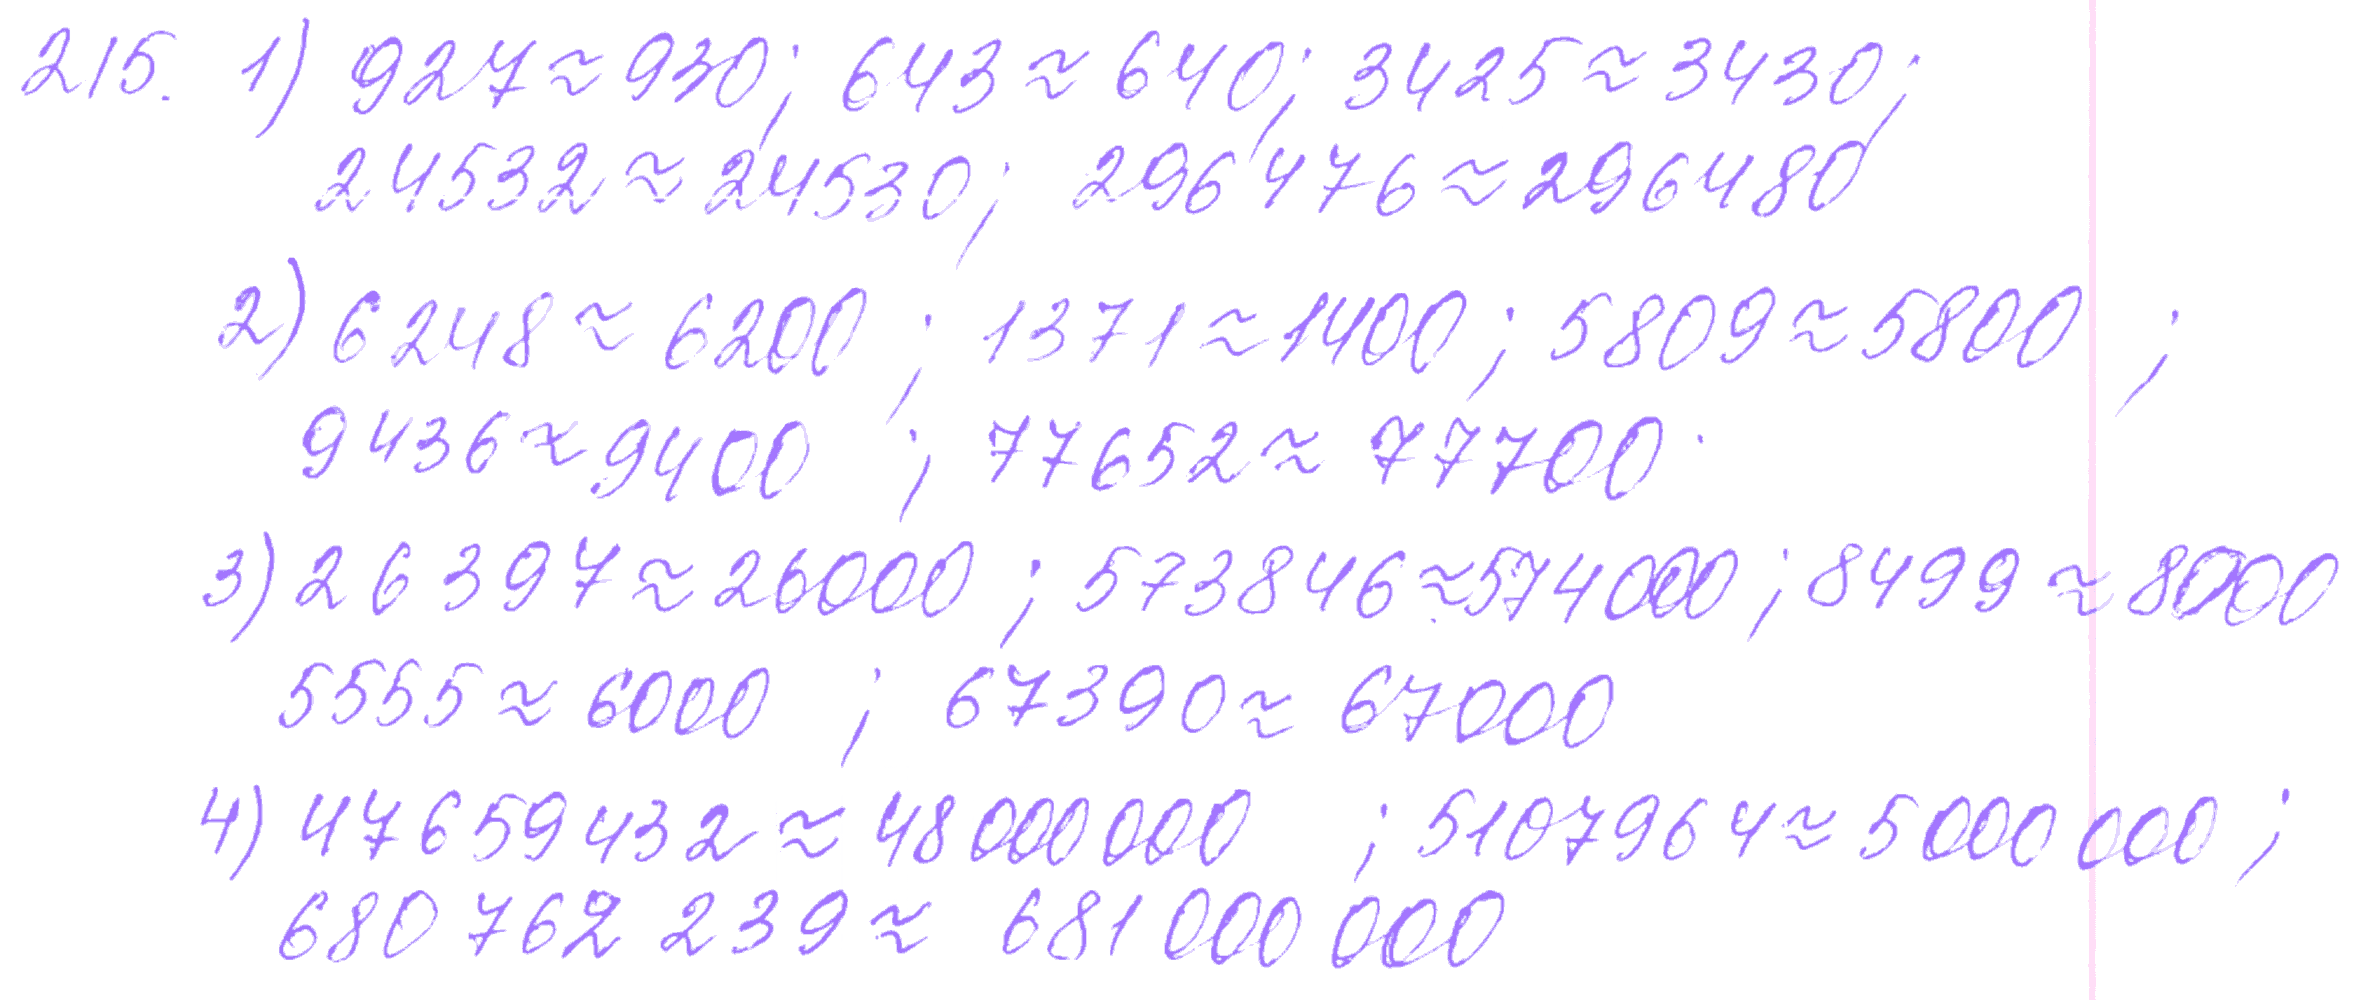 215. 1) 927 ≈ 930; 643 ≈ 640; 3425 ≈ 3430;
24532 ≈ 24530; 296476 ≈ 296480
2) 6248 ≈ 6200 ; 1371 ≈ 1400 ; 5809 ≈ 5800 ;
9436 ≈ 9400 ; 77652 ≈ 77700.
3) 26397 ≈ 26000 ; 573846 ≈ 574000 ; 8499 ≈ 8000
5555 ≈ 6000 ; 67390 ≈ 67000
4) 47659432 ≈ 48 000 000 ; 5107964 ≈ 5 000 000 ;
680 762 239 ≈ 681 000 000